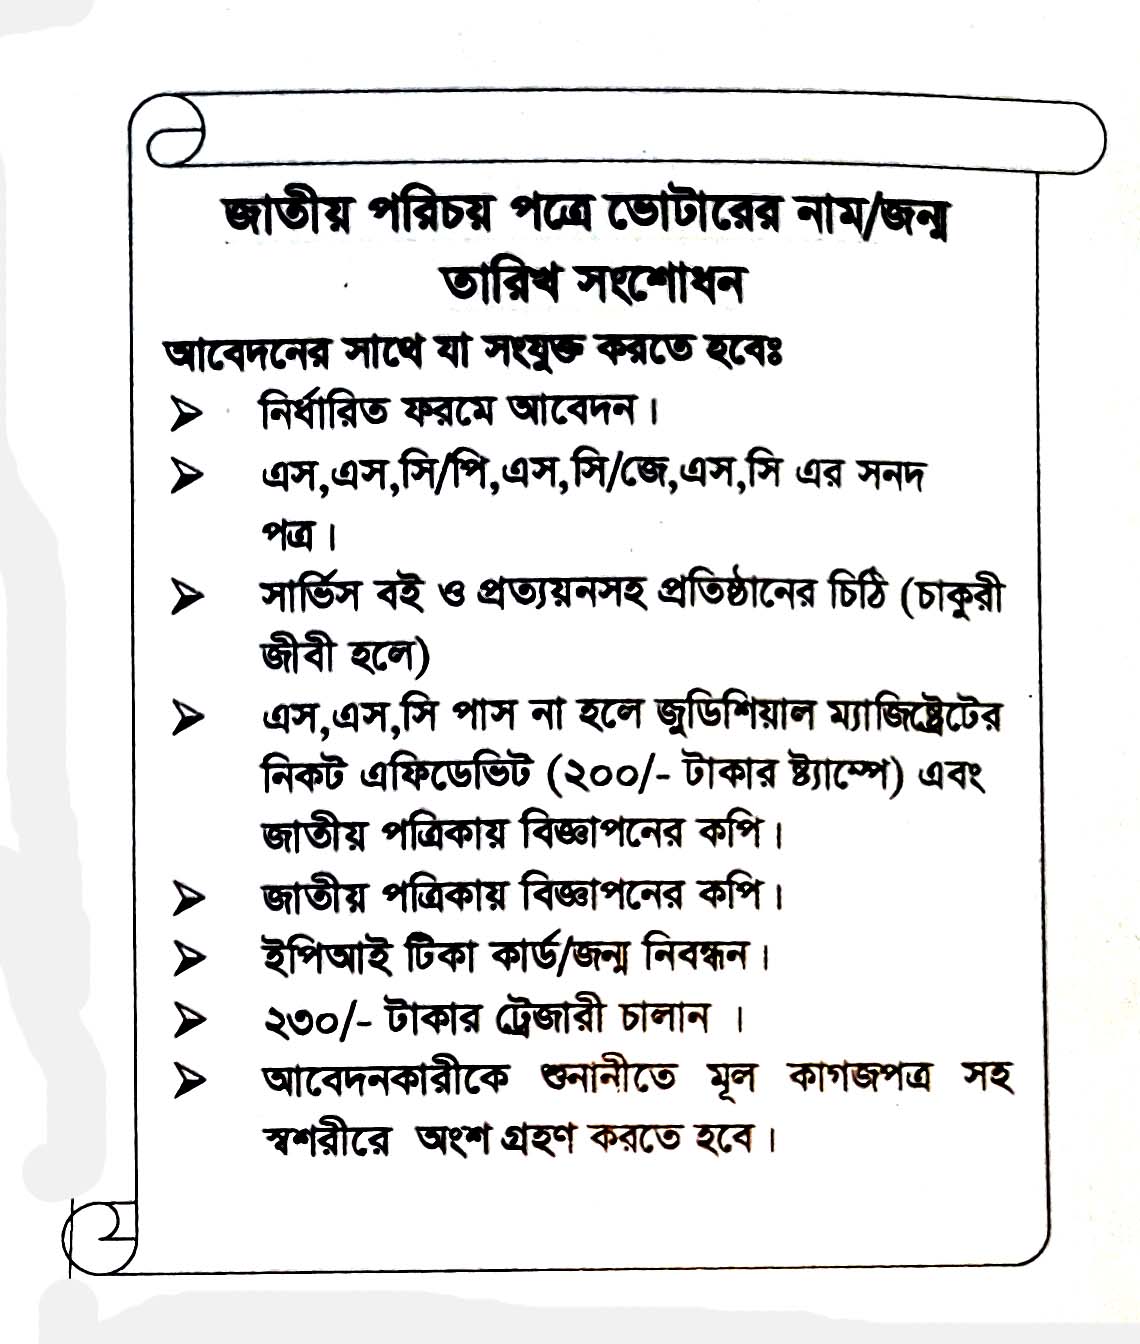 জাতীয় পরিচয় পত্রে ভোটারের নাম/জন্ম
তারিখ সংশোধন
আবেদনের সাথে যা সংযুক্ত করতে হবেঃ
➢ নির্ধারিত ফরমে আবেদন।
➢ এস,এস,সি/পি,এস,সি/জে,এস,সি এর সনদ
পত্র।
➢ সার্ভিস বই ও প্রত্যয়নসহ প্রতিষ্ঠানের চিঠি (চাকুরী
জীবী হলে)
➢ এস,এস,সি পাস না হলে জুডিশিয়াল ম্যাজিষ্ট্রেটের
নিকট এফিডেভিট (২০০/- টাকার ষ্ট্যাম্পে) এবং
জাতীয় পত্রিকায় বিজ্ঞাপনের কপি।
➢ জাতীয় পত্রিকায় বিজ্ঞাপনের কপি।
➢ ইপিআই টিকা কার্ড/জন্ম নিবন্ধন।
➢ ২৩০/- টাকার ট্রেজারী চালান ।
➢ আবেদনকারীকে শুনানীতে মূল কাগজপত্র সহ
স্বশরীরে অংশ গ্রহণ করতে হবে।